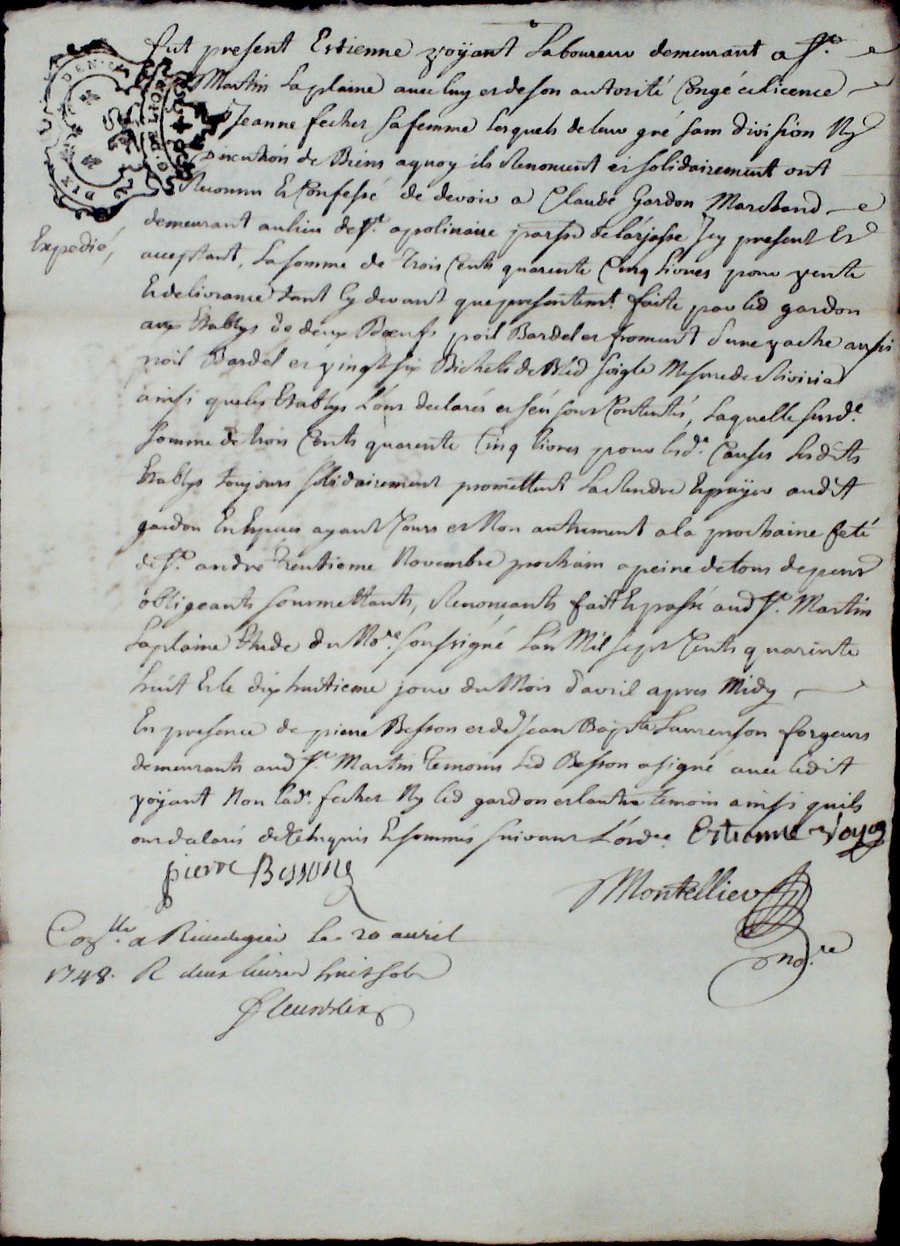 DIX DENIERS
G. DE LION
fut present Estienne voÿant Laboureur demeurant a St.
Martin Laplaine avec luy et de son autorité Congé et licence
Jeanne fecher sa femme Lesquels de leur gré sans division Ny
Discution de Biens aquoy ils Renoncent et solidairement ont
Reconnu Et Confessé de devoir a Claude Gardon Marchand
demeurant au lieu de St. apolinaire parsse de larjasse Icy present Et
Expedié,
acceptant, La somme de Trois Cents quarente Cinq livres pour vente
Et delivrance tant cy devant que presentemt. faite par led gardon
aux Etablys de deux Bœufs poil Bardel et froment d'une vache aussi
poil Bardel et vingt six Bichets de Bled soigle Mesure de Riviria
ainsi que les Etablys L'ont declarés et s'en sont Contentés, Laquelle susde.
somme de trois Cents quarente Cinq livres pour lesd. Causes Lesdits
Etablys toujours solidairement promettent La Rendre Et payer audit
gardon En Especes ayant Cours et Non autrement a la prochaine feté
de St. andré trentieme Novembre prochain a peine de tous depens
obligeants soumettants, Renonceants fait Et passé aud St. Martin
Laplaine Etude du Nore. soussigné L'an Mil sept Cents quarente
huit Et le dix huitieme jour du Mois d'avril apres Midy
En presence de pierre Besson et de Jean Bapte Laurenson forgeurs
demeurants aud St. Martin temoins Led Besson a signé avec ledit
voÿant Non lad. fecher Ny led gardon et lautre temoin ainsi quils
ont declaré de ce Enquis Et sommés suivant L'orde. Estienne Voya
pierre Besson
Montellier
nore
Conlle. a Rivedegier le 20 avril
1748. R deux livres huit sols